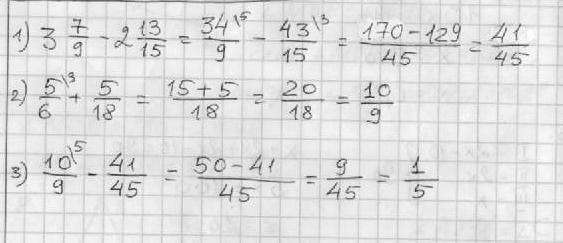 1) 3 7/9 - 2 13/15 = 34\5/9 - 43\3/15 = 170-129/45 = 41/45
2) 5\3/6 + 5/18 = 15+5/18 = 20/18 = 10/9
3) 10\5/9 - 41/45 = 50-41/45 = 9/45 = 1/5